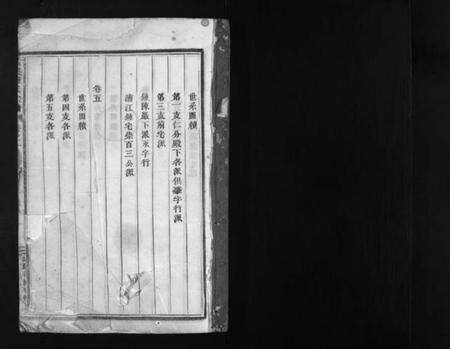 世系圖續
第一支仁分殿下各派俱肇字行派
第三支前宅派
後陳巖下派永字行
浦江後宅柴百三公派
卷五
世系圖續
第四支各派
第五支各派